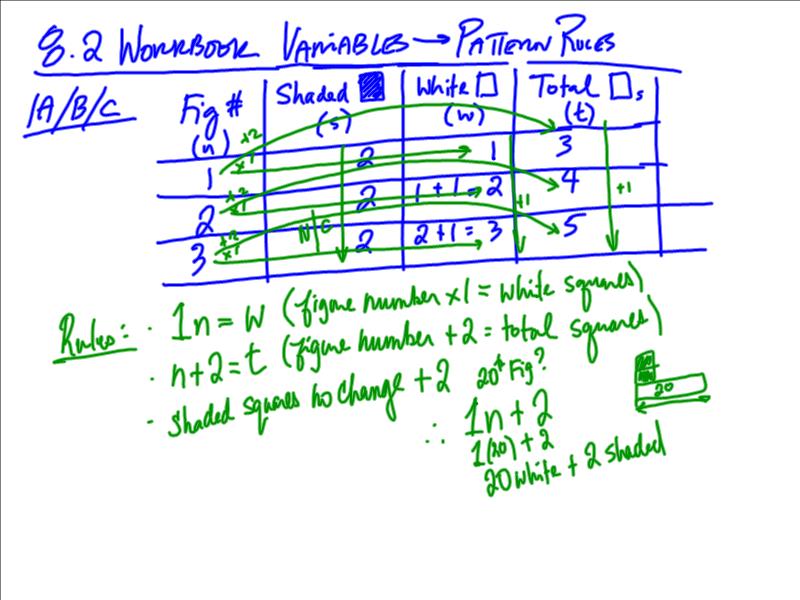 8.2 WORKBOOK VARIABLES → PATTERN RULES
1A/B/C
Fig # (n) Shaded (s) White (w) Total □s (t)
1 x2 x1 2 1 3
2 x2 x1 2 1+1=2 4
3 x2 x1 N/C 2 2+1=3 +1 5 +1
Rules: · 1n = W (figure number x1 = white squares)
· n+2=t (figure number +2 = total squares)
· shaded squares no change +2
20th Fig?
∴ 1n+2
1(20)+2
20 white + 2 shaded
20